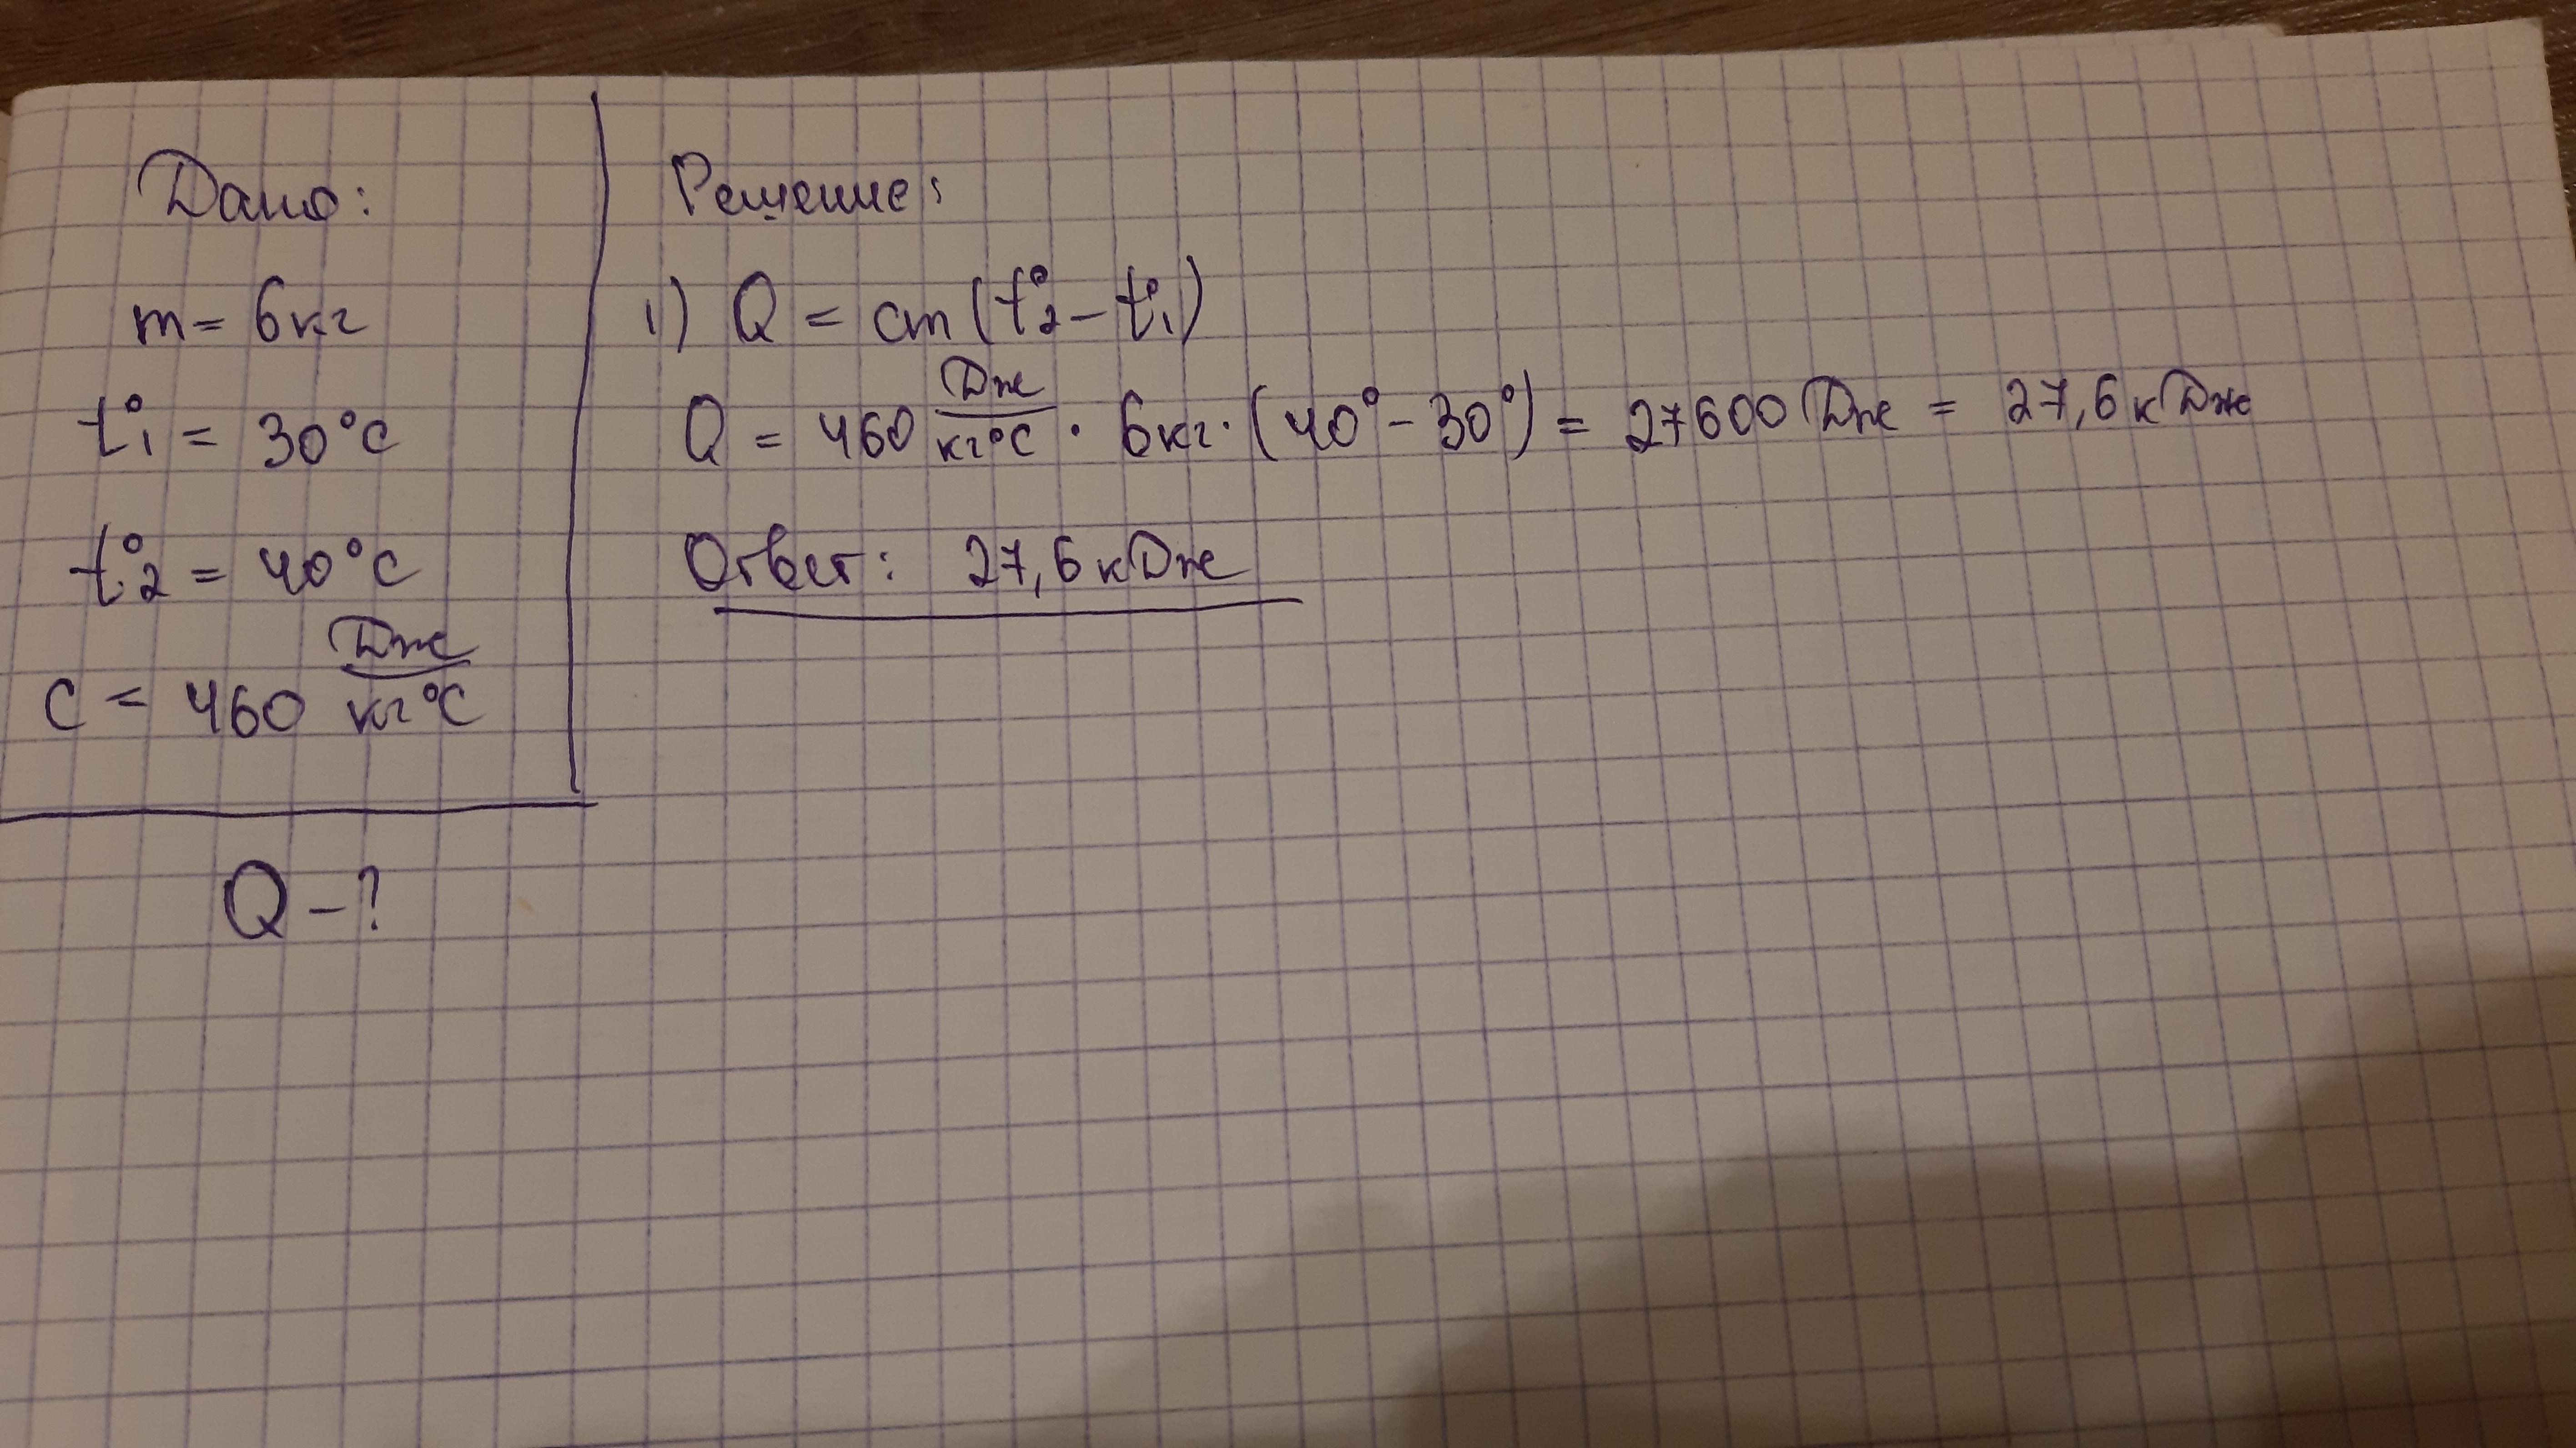 Дано:
m = 6 кг
t°1 = 30°C
t°2 = 40°C
c = 460 Дж/кг°C
Q - ?
Решение:
1) Q = cm (t°2 - t°1)
Q = 460 Дж/кг°C · 6 кг · (40° - 30°) = 27600 Дж = 27,6 кДж
Ответ: 27,6 кДж